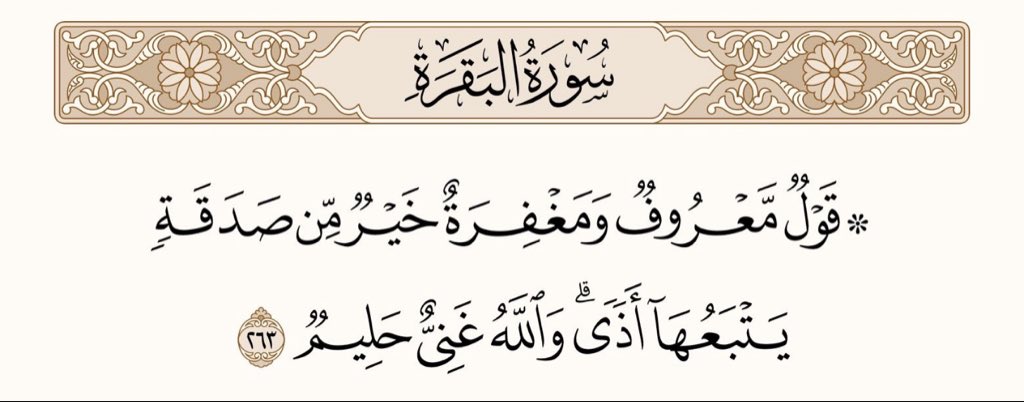 سُورَةُ البَقَرَةِ
۞ قَوۡلٞ مَّعۡرُوفٞ وَمَغۡفِرَةٌ خَيۡرٞ مِّن صَدَقَةٖ
يَتۡبَعُهَآ أَذٗىۗ وَٱللَّهُ غَنِيٌّ حَلِيمٞ ٢٦٣